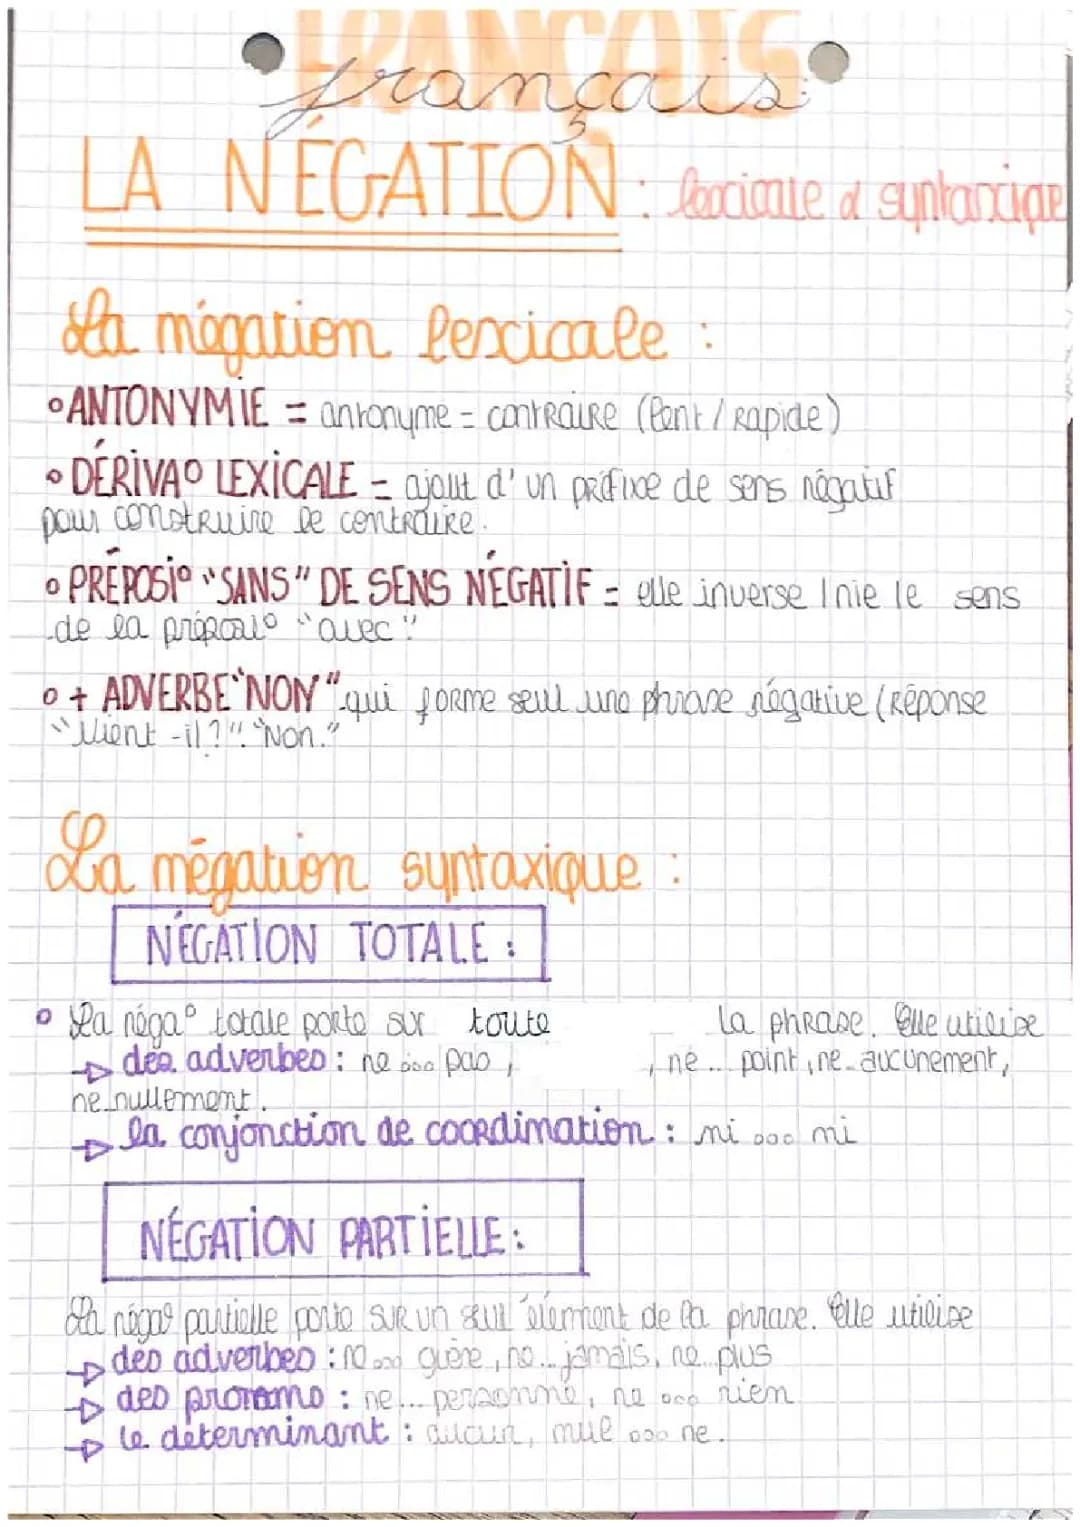 FRANÇAIS
français
LA NÉGATION : lexicale et syntaxique
La négation lexicale :
• ANTONYMIE = antonyme = contraire (lent / rapide)
• DÉRIVA° LEXICALE = ajout d'un préfixe de sens négatif
pour construire le contraire.
• PRÉPOSI° "SANS" DE SENS NÉGATIF = elle inverse / nie le sens
de la préposi° "avec".
• + ADVERBE "NON" qui forme seul une phrase négative (Réponse
"Vient-il ?". "Non."
La négation syntaxique :
NÉGATION TOTALE :
• La néga° totale porte sur toute la phrase. Elle utilise
→ des adverbes : ne ... pas, , ne ... point, ne ... aucunement,
ne ... nullement.
→ la conjonction de coordination : ni ... ni
NÉGATION PARTIELLE :
La néga° partielle porte sur un seul élément de la phrase. Elle utilise
→ des adverbes : ne ... guère, ne ... jamais, ne ... plus
→ des pronoms : ne ... personne, ne ... rien
→ le déterminant : aucun, nul ... ne.